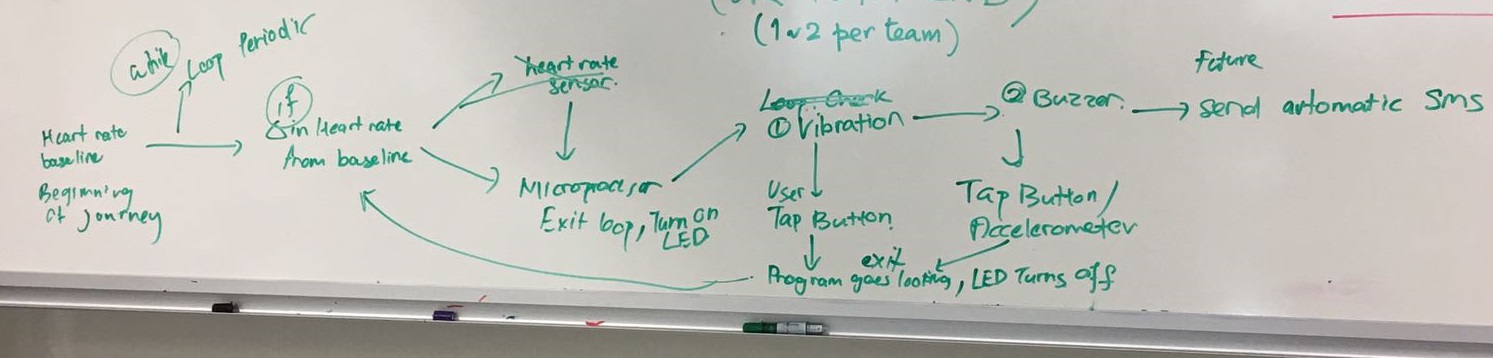 (1~2 per team)
while
Loop Periodic
Heart rate
baseline
Beginning
of journey
if
Δ in Heart rate
from baseline
heart rate
sensor.
Microprocessor
Exit loop, Turn on
LED
Loop Check
① Vibration
User
Tap Button
② Buzzer.
Tap Button /
Accelerometer
Future
Send automatic SMS
exit
Program goes looking, LED Turns off